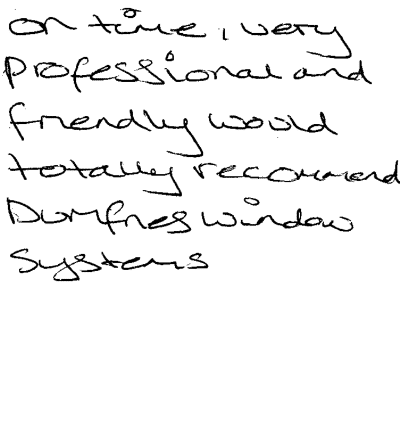 on time, very
professional and
friendly would
totally recommend
Dumfries window
systems